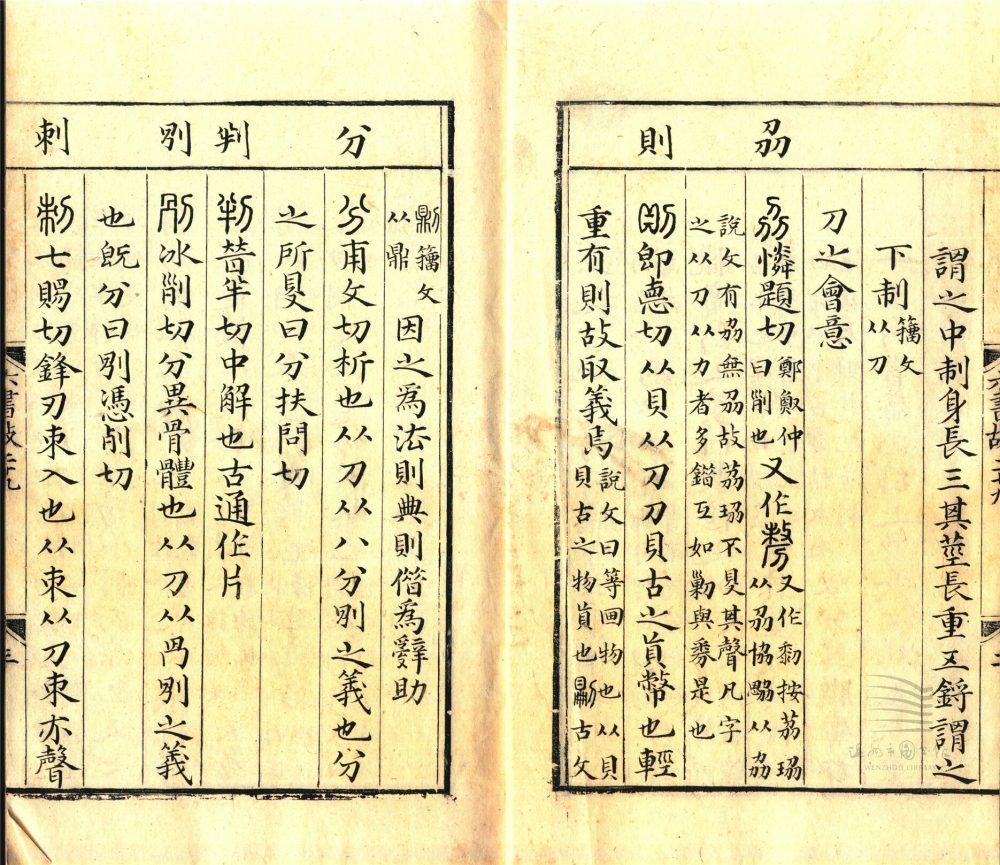 謂之中制身長三其莖長重五鋝謂之
下制籒文从刀
刀之會意
刕
刕憐題切鄭㒹仲曰削也又作𠞉又作黎按荔珕
說文有劦無刕故荔珕不見其聲凡字
之从刀从力者多錯互如勦與券是也
則
則即悳切从貝从刀刀貝古之貨幣也輕
重有則故取義焉說文曰等畫物也从貝貝古之物貨也古文
籒文从鼎因之爲法則典則偕爲辭助
分
分甫文切析也从刀从八分別之義也分
之所㝵曰分扶問切
判
判普半切中解也古通作片
別
別冰削切分異骨體也从刀从冎別之義
也旣分曰別憑刮切
刺
刺七賜切鋒刃朿入也从朿从刀朿亦聲
六書故二十九
三
六書故二十九
二
溫州市圖書館
WENZHOU LIBRARY